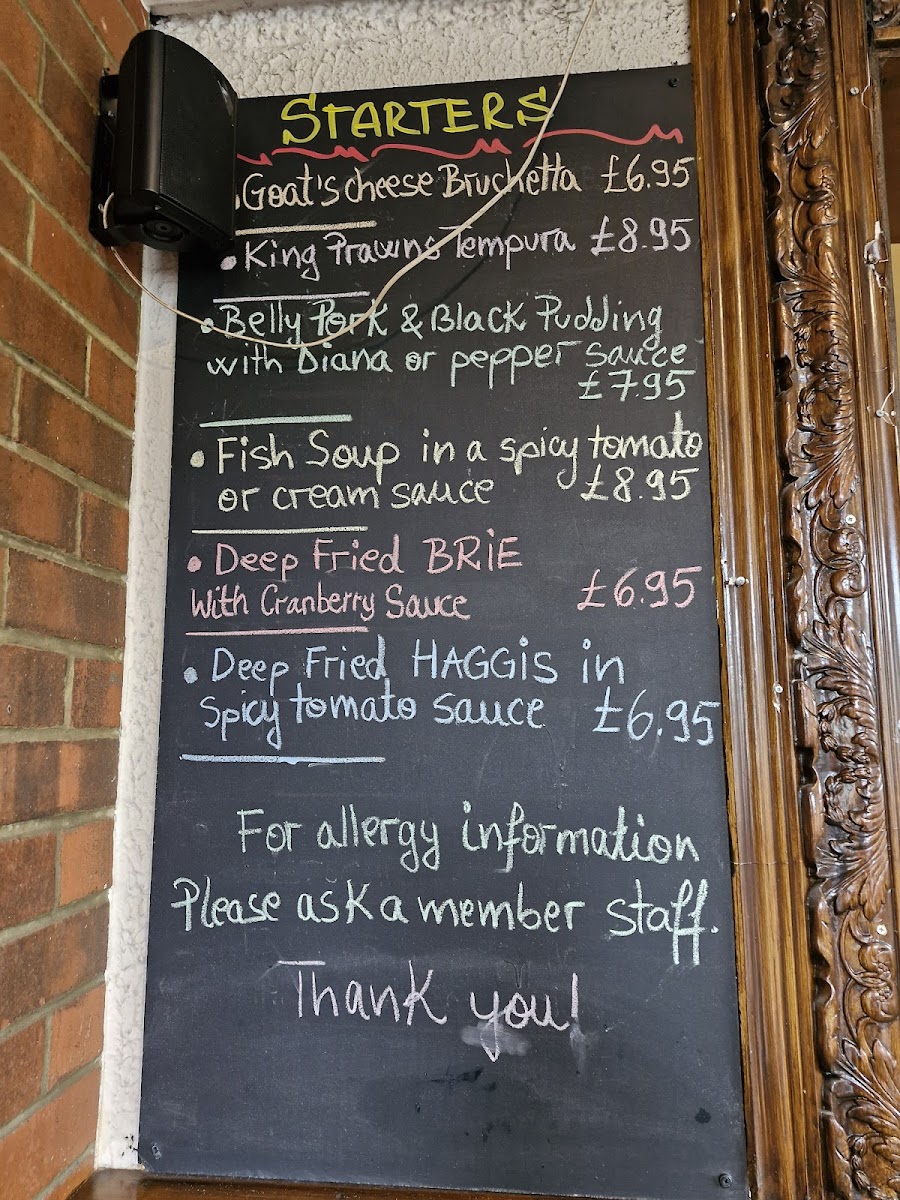 STARTERS
• Goat's cheese Bruchetta £6.95
• King Prawns Tempura £8.95
• Belly Pork & Black Pudding
with Diana or pepper sauce
£7.95
• Fish Soup in a spicy tomato
or cream sauce £8.95
• Deep Fried BRiE
With Cranberry Sauce £6.95
• Deep Fried HAGGiS in
spicy tomato sauce £6.95
For allergy information
Please ask a member staff.
Thank you!